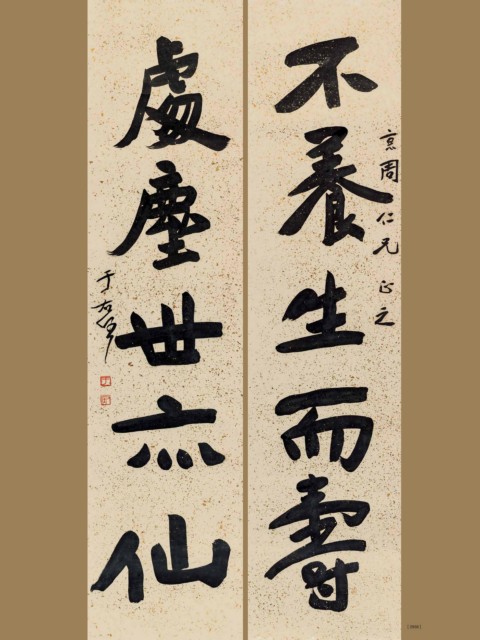 不養生而壽
處塵世亦仙
亮周仁兄正之
于右任